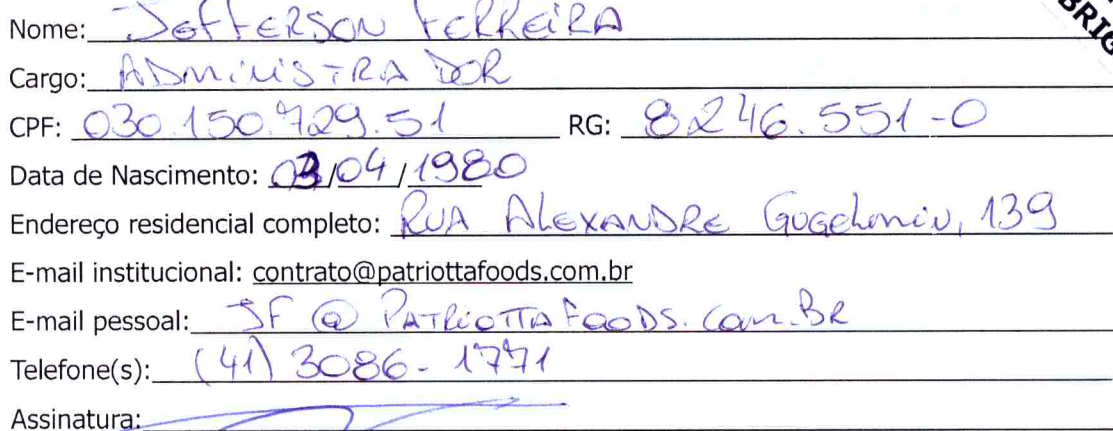 BRIG
Nome: Jefferson Ferreira
Cargo: Administrador
CPF: 030.150.729.51 RG: 8246.551-0
Data de Nascimento: 03/04/1980
Endereço residencial completo: Rua Alexandre Gugelmin, 139
E-mail institucional: contrato@patriottafoods.com.br
E-mail pessoal: JF@Patriottafoods.com.br
Telefone(s): (41) 3086-1771
Assinatura: